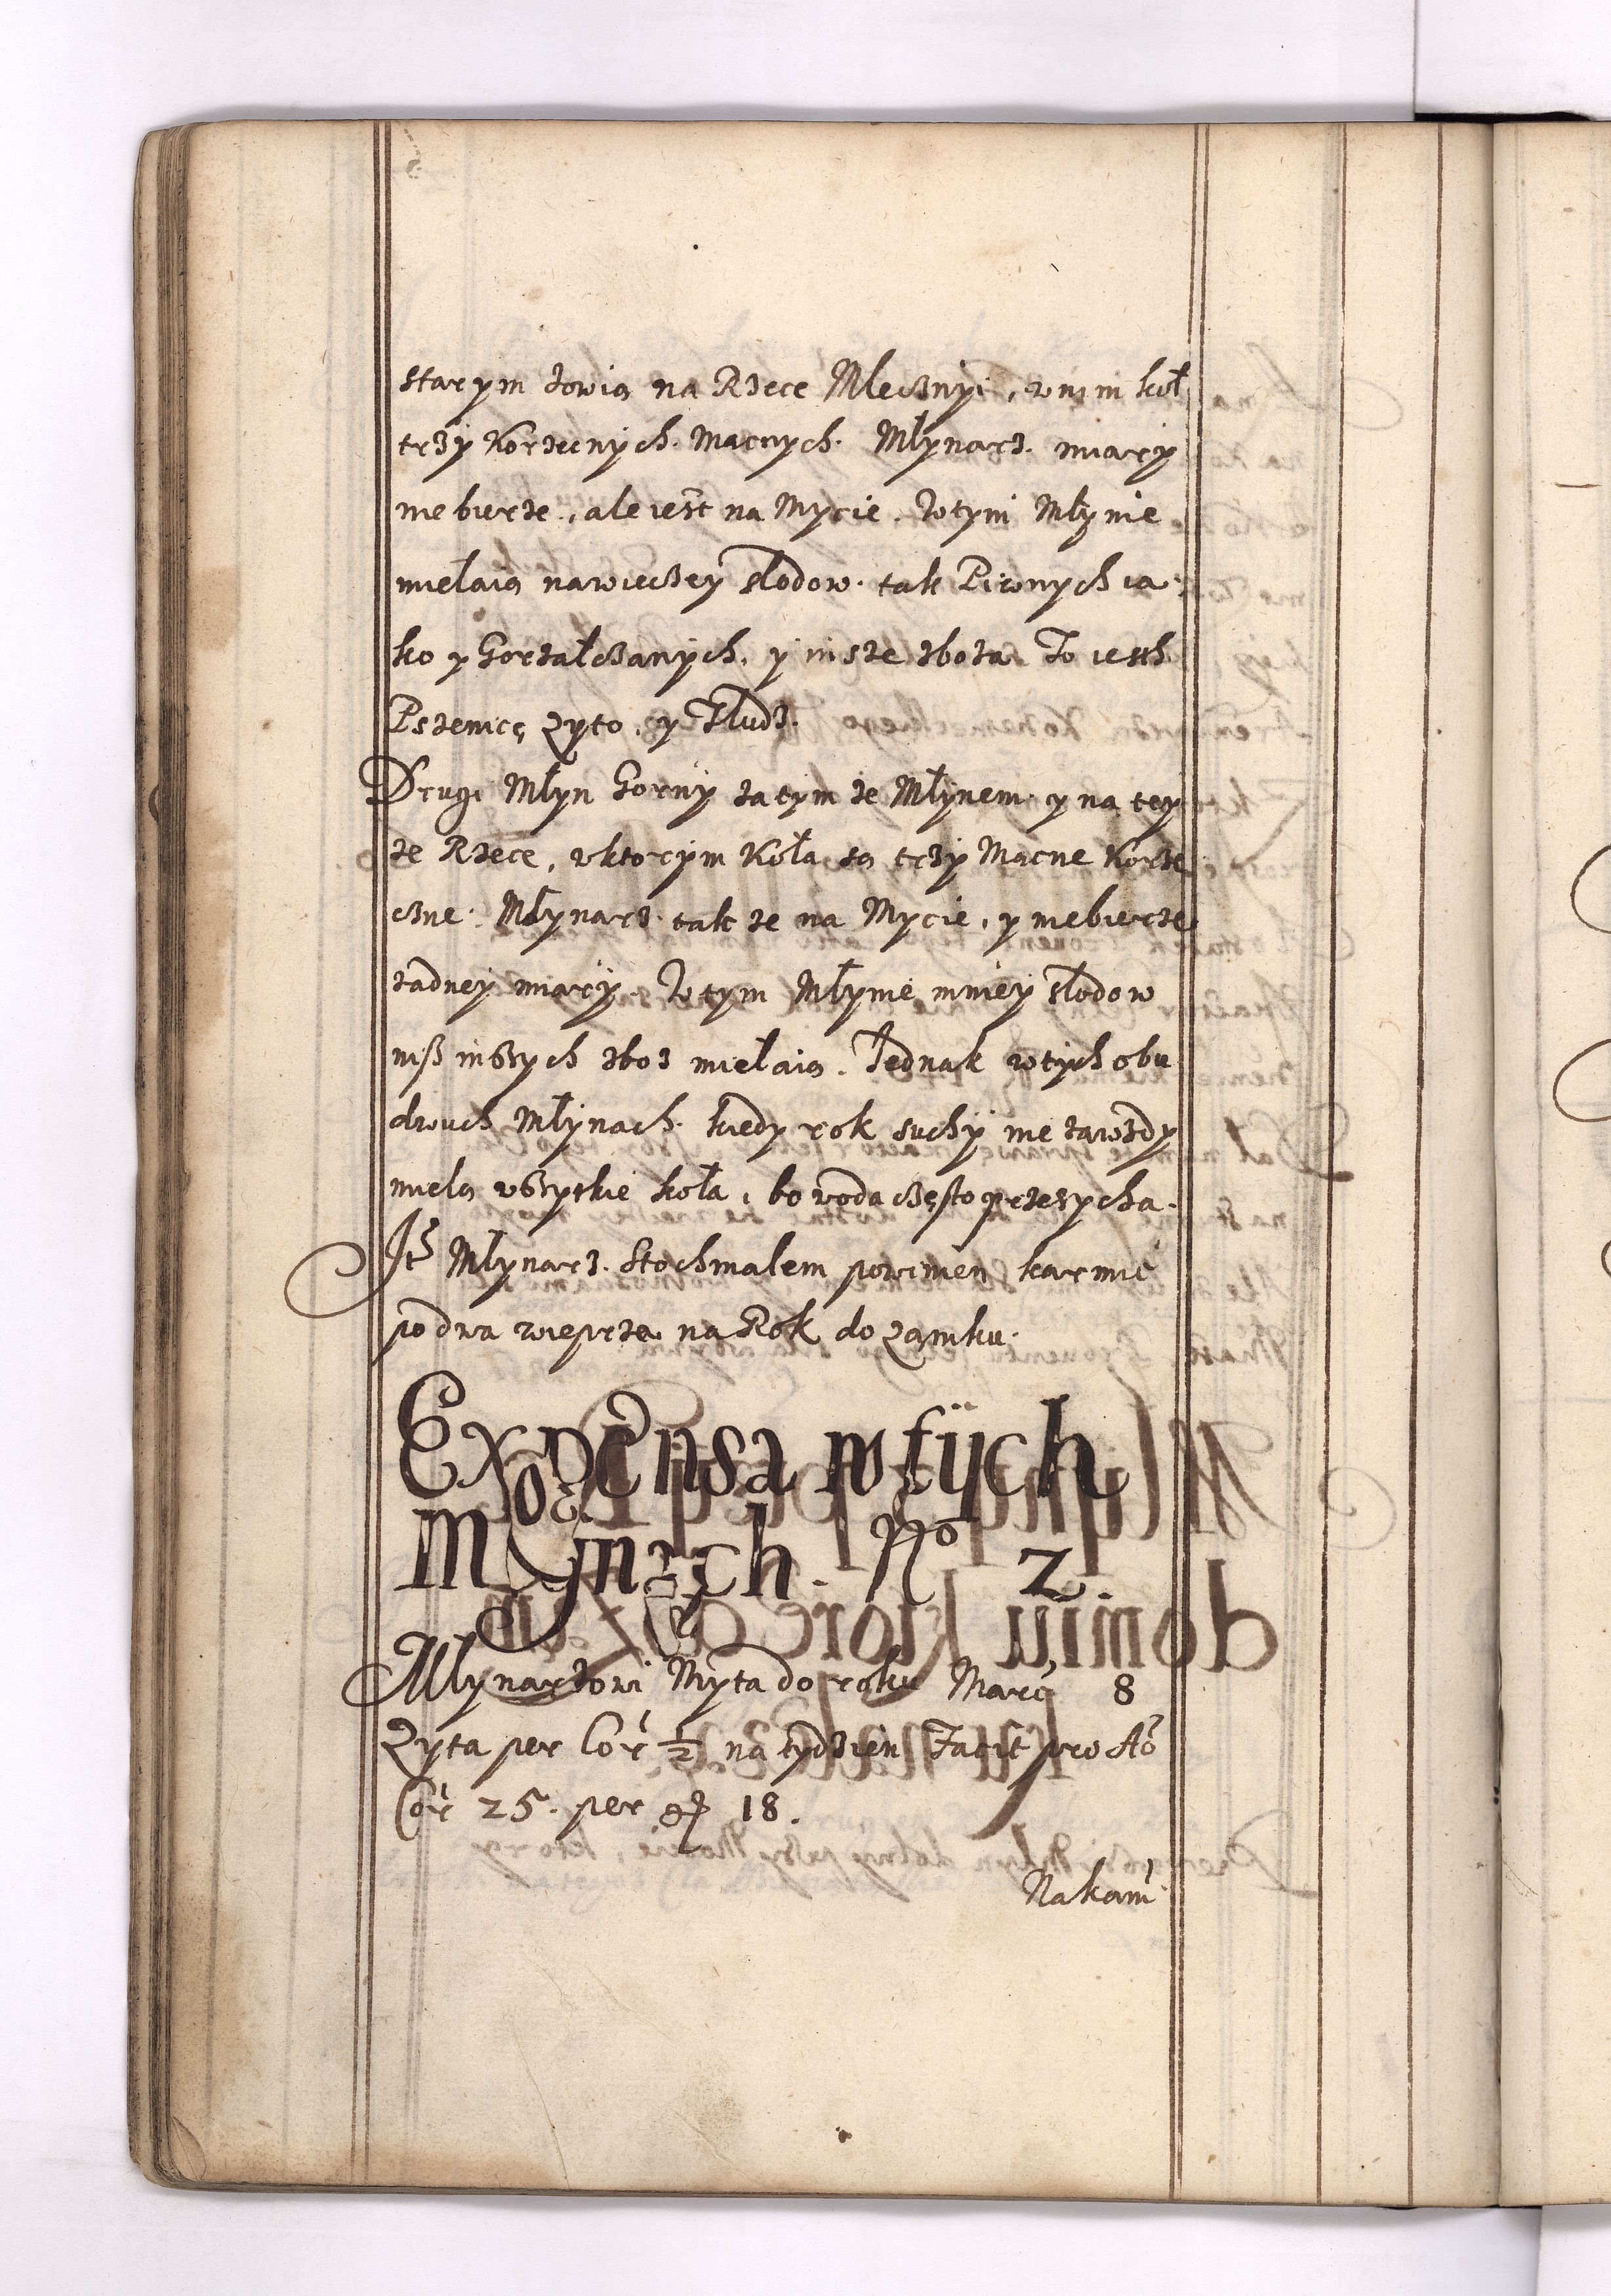 starym zowią na Rzece Mlecznyi, wnim koł
trzy Korzecnych. Macnych. Młynarz. miary
niebierze, ale iest na Mycie. Wtym Młynie
mielaią nawieczey slodow. tak Piwnych ia
ko y Gorzałczanych. y insze zboza To iesth
Pszenicę Zyto, y Tłudz.
Drugi Młyn Gorny zatym ze Młynem. y na tey
ze Rzece, wktorym Koła są trzy Macne Korze
czne. Młynarz. tak ze na Mycie, y niebierze
zadney miary. Wtym Młynie mniey słodow
niß inßych zboz mielaią. Jednak wtych obu
dwuch Młynach. kiedy rok suchy nie zawzdy
mielą wßyskie koła, bo woda często przesycha.
It Młynarz. Stochmalem powinien karmić
po dwa wieprza na Rok do Zamku.
Expensa wtych
Młynach. No 2.
Mlynarzowi Myta do roku Marc 8
Zyta per Cor ½ na tydzien Facit pro Ao
Cor 25. per gr 18.
Nakarm